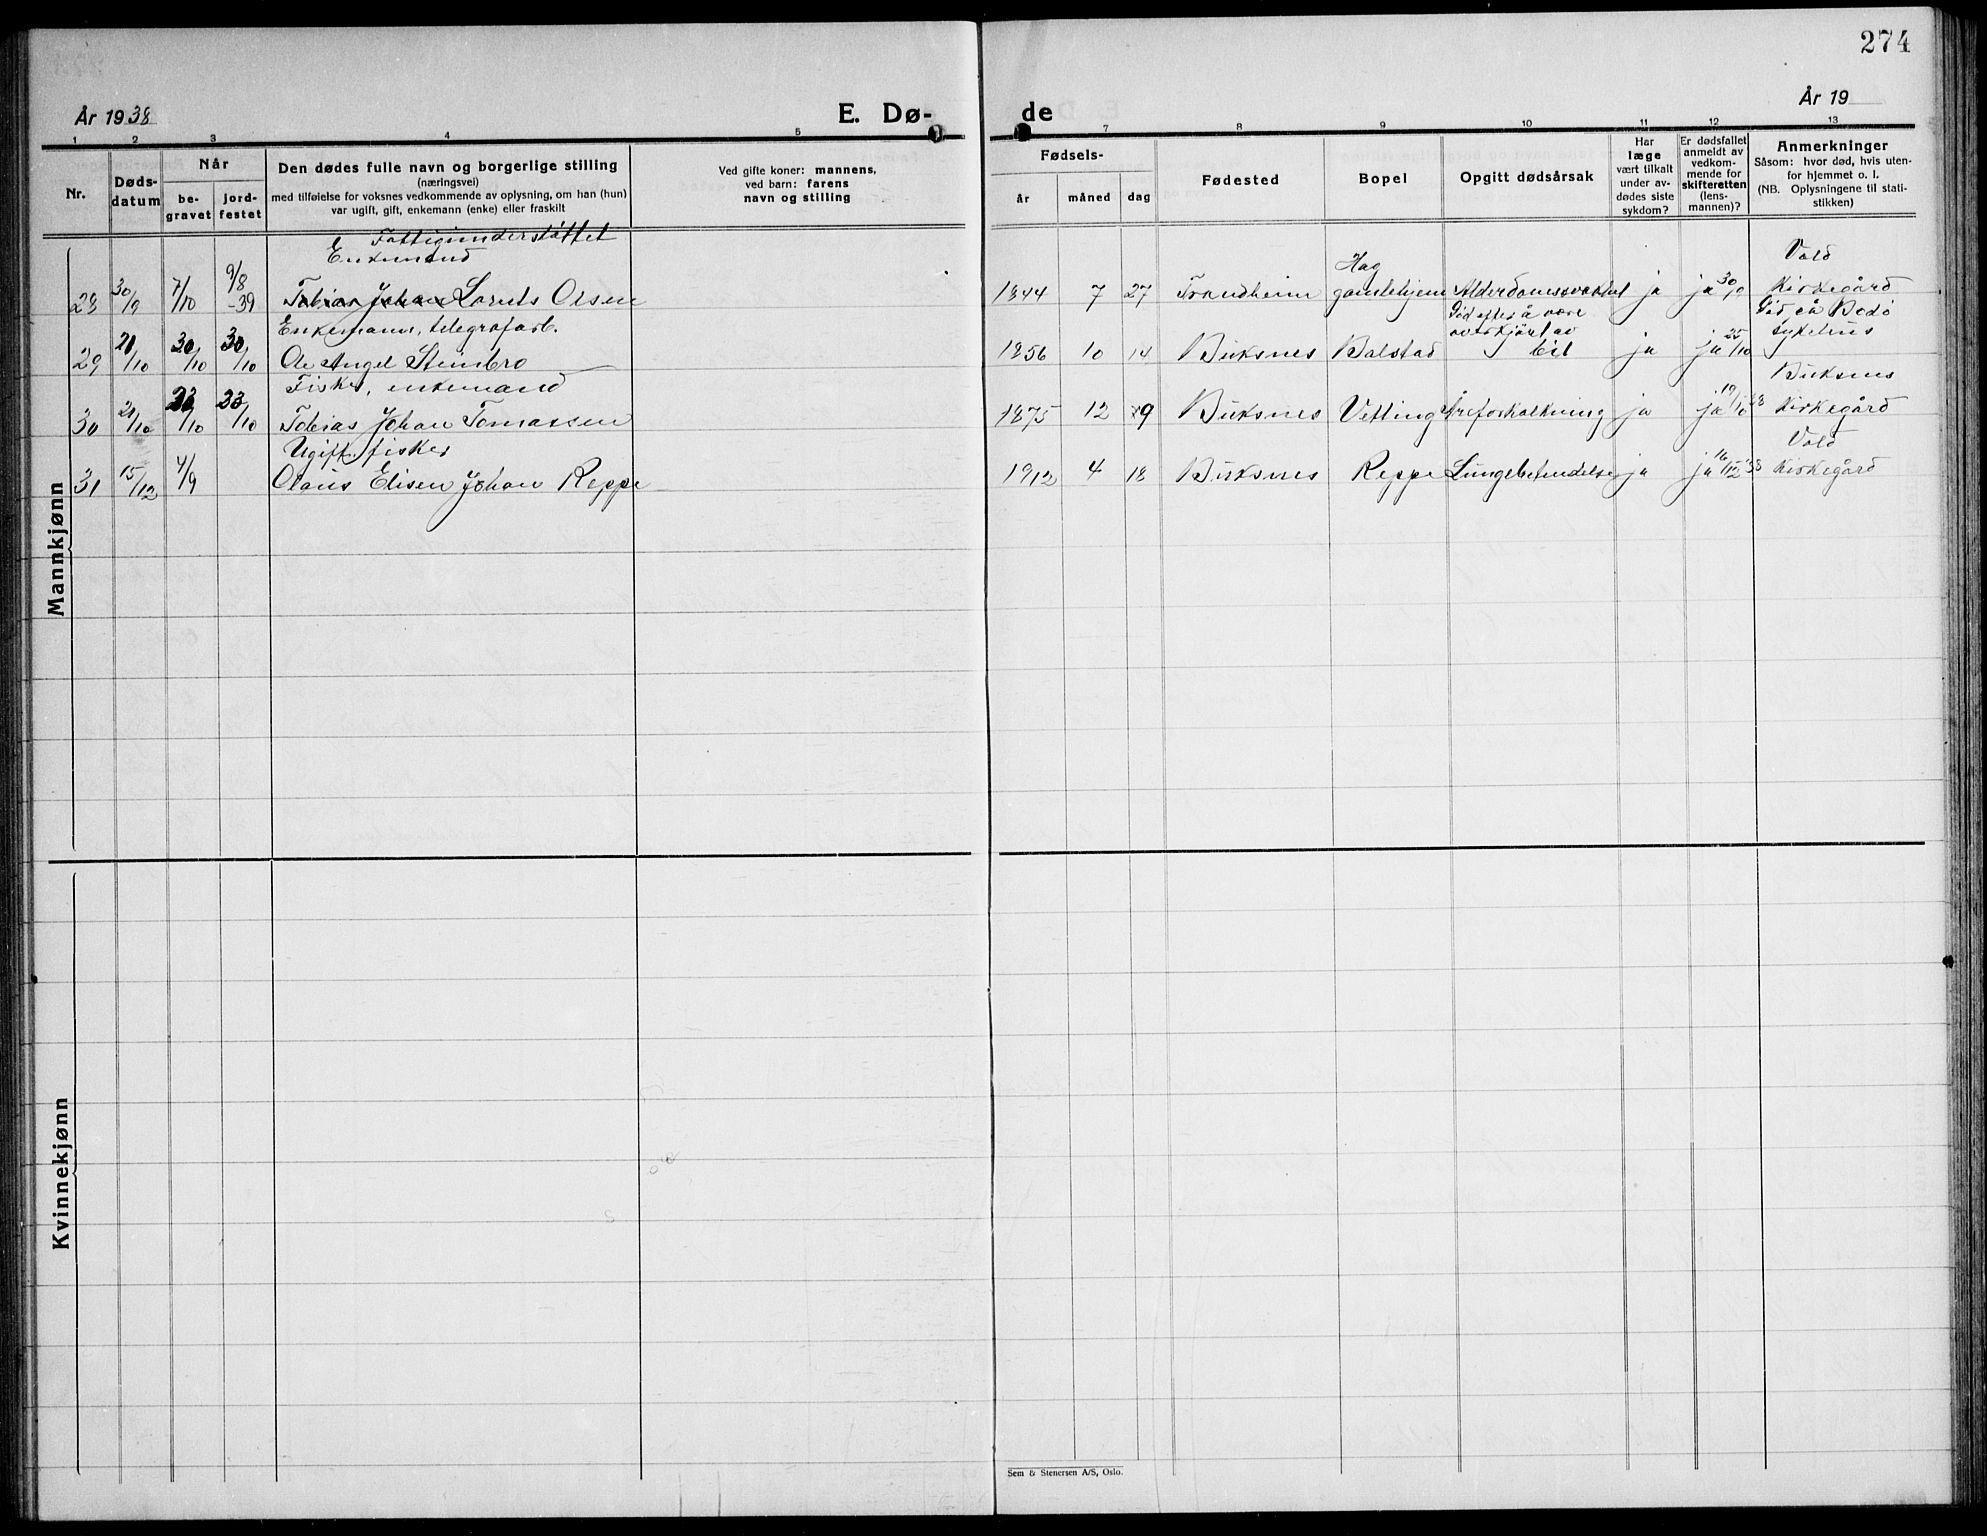 274
År 1938
E. Dø-
de
År 19
1 2 3 4 5 7 8 9 10 11 12 13
Nr.
Døds-
datum
Når
be-
gravet
jord-
festet
Den dødes fulle navn og borgerlige stilling
(næringsvei)
med tilføielse for voksnes vedkommende av oplysning, om han (hun)
var ugift, gift, enkemann (enke) eller fraskilt
Ved gifte koner: mannens,
ved barn: farens
navn og stilling
Fødsels-
år
måned
dag
Fødested
Bopel
Opgitt dødsårsak
Har
læge
vært tilkalt
under av-
dødes siste
sykdom?
Er dødsfallet
anmeldt av
vedkom-
mende for
skifteretten
(lens-
mannen)?
Anmerkninger
Såsom: hvor død, hvis uten-
for hjemmet o. l.
(NB. Oplysningene til stati-
stikken)
Mannkjønn
Fattigunderstøttet
Enkemand
28 30/9 7/10 9/8 -39 Tobias Johan Lornts Olsen
1844 7 27 Trondheim Hag gamlehjem Alderdomssvakhet ja ja 30/9 Vold Kirkegård
Enkemann, telegrafarb.
29 21/10 30/10 30/10 Ole Angel Steinbro
1856 10 14 Buksnes Balstad Död efter å være overkjört av bil ja ja 25/10 Död på Bodö sykehus
Fisker, enkemand
30 21/10 23/10 23/10 Tobias Johan Tomassen
1875 12 9 Buksnes Vetting Åreforkalkning ja ja 19/10 38 Buksnes Kirkegård
Ugift, fisker
31 15/12 4/9 Olaus Elisen Johan Reppe
1912 4 18 Buksnes Reppe Lungebetendelse ja ja 16/12 38 Vold Kirkegård
Kvinnekjønn
Sem & Stenersen A/S, Oslo.